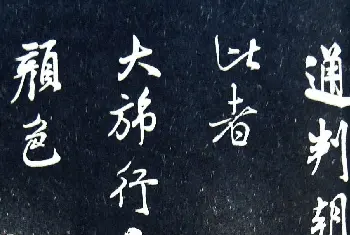 通判朝
此者
大旆行
顔色